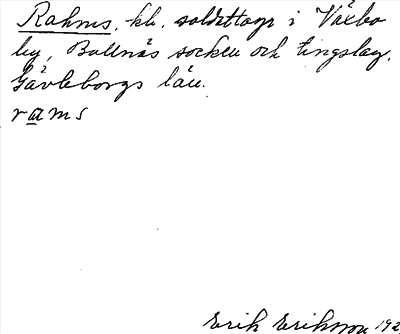 Rahms, kh. soldattorp i Växbo
by, Bollnäs socken och tingslag,
Gävleborgs län.
rams
Erik Eriksson 192